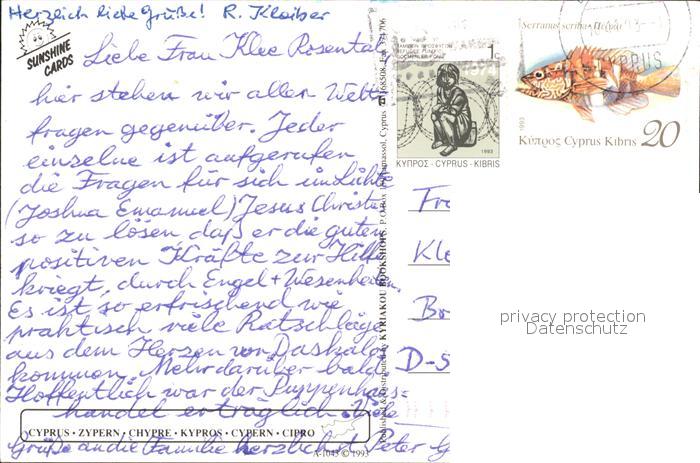 Herzlich liebe Grüße! R. Kloiber
SUNSHINE
CARDS
Liebe Frau Klee Rosental
hier stehen wir allen Welt-
fragen gegenüber. Jeder
einzelne ist aufgerufen
die Fragen für sich im Lichte
(Joshua Emanuel) Jesus Christus
so zu lösen daß er die guten
positiven Kräfte zur Hilfe
kriegt, durch Engel + Wesenheiten.
Es ist so erfrischend wie
praktisch viele Ratschläge
aus dem Herzen von Daskalos
kommen. Mehr darüber bald.
Hoffentlich war der Puppenhaus=
handel erträglich. Viele
Grüße an die Familie herzlichst Peter
CYPRUS • ZYPERN • CHYPRE • KYPROS • CYPERN • CIPRO
A-1043 © 1993
Published & Distributed by KYRIAKOU BOOKSHOPS, P.O.Box Limassol, Cyprus
1c
1974
ΚΥΠΡΟΣ - CYPRUS - KIBRIS
1993
Serranus scriba - Πέρκα
CYPRUS
1993
Κύπρος Cyprus Kıbrıs 20
Fr
Kle
Bo
D-5
privacy protection
Datenschutz